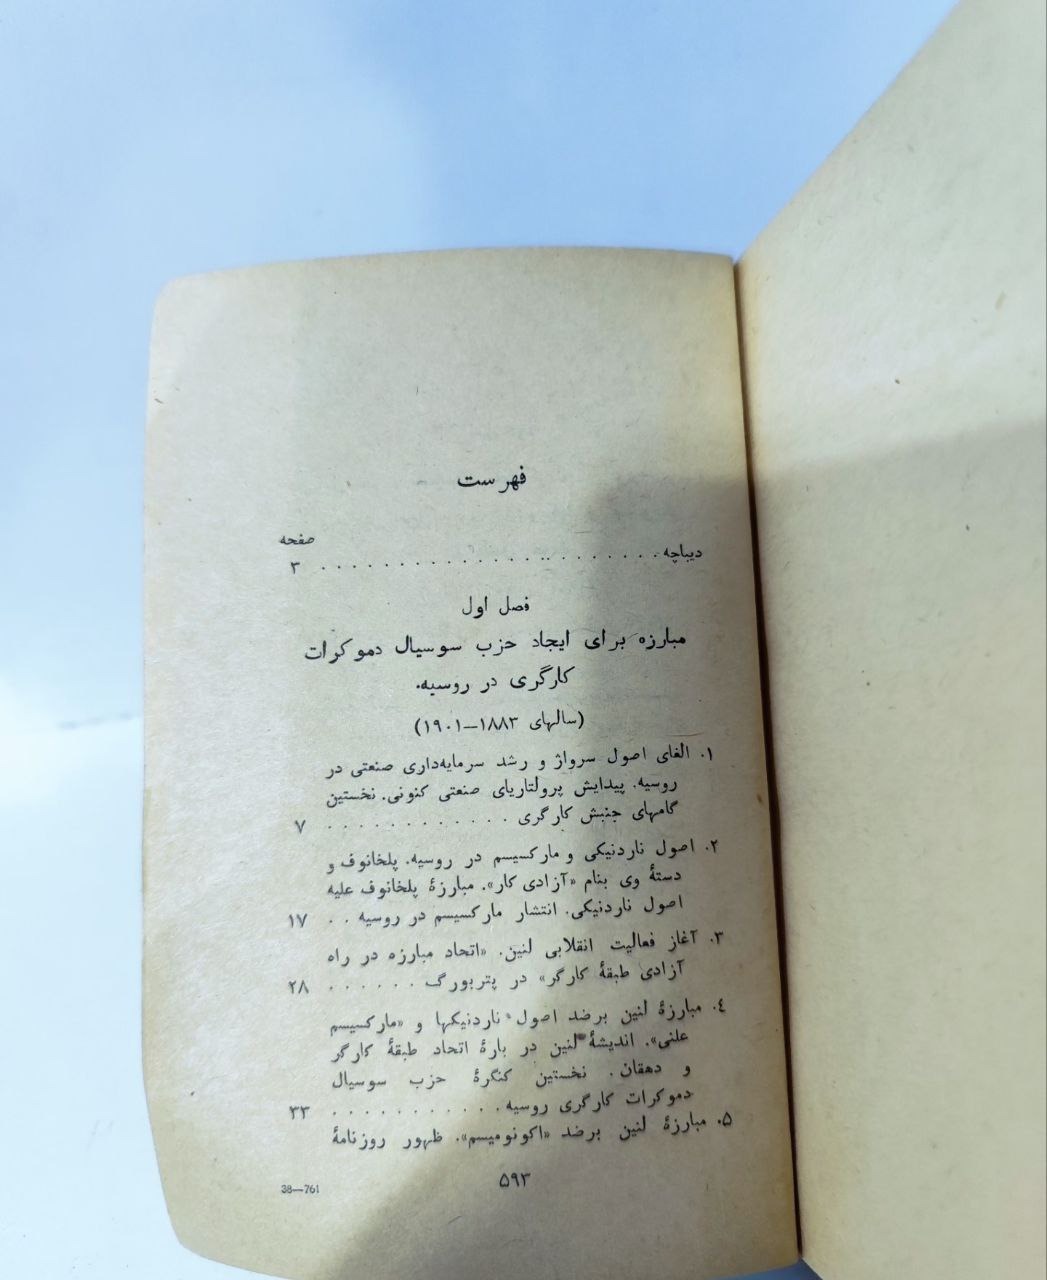 فهرست
صفحه
دیباچه . . . . . . . . . . . . . . . . . . . . . . ۳
فصل اول
مبارزه برای ایجاد حزب سوسیال دموکرات
کارگری در روسیه.
(سالهای ۱۸۸۳—۱۹۰۱)
۱. الغای اصول سرواژ و رشد سرمایه‌داری صنعتی در
روسیه. پیدایش پرولتاریای صنعتی کنونی. نخستین
گامهای جنبش کارگری . . . . . . . . . . . . ۷
۲. اصول ناردنیکی و مارکسیسم در روسیه. پلخانوف و
دستهٔ وی بنام «آزادی کار». مبارزهٔ پلخانوف علیه
اصول ناردنیکی. انتشار مارکسیسم در روسیه . . ۱۷
۳. آغاز فعالیت انقلابی لنین. «اتحاد مبارزه در راه
آزادی طبقهٔ کارگر» در پتربورگ . . . . . . ۲۸
٤. مبارزهٔ لنین برضد اصول ناردنیکها و «مارکسیسم
علنی». اندیشهٔ لنین در بارهٔ اتحاد طبقهٔ کارگر
و دهقان. نخستین کنگرهٔ حزب سوسیال
دموکرات کارگری روسیه . . . . . . . . . . . ۳۳
۵. مبارزهٔ لنین برضد «اکونومیسم». ظهور روزنامهٔ
۵۹۳
38—761